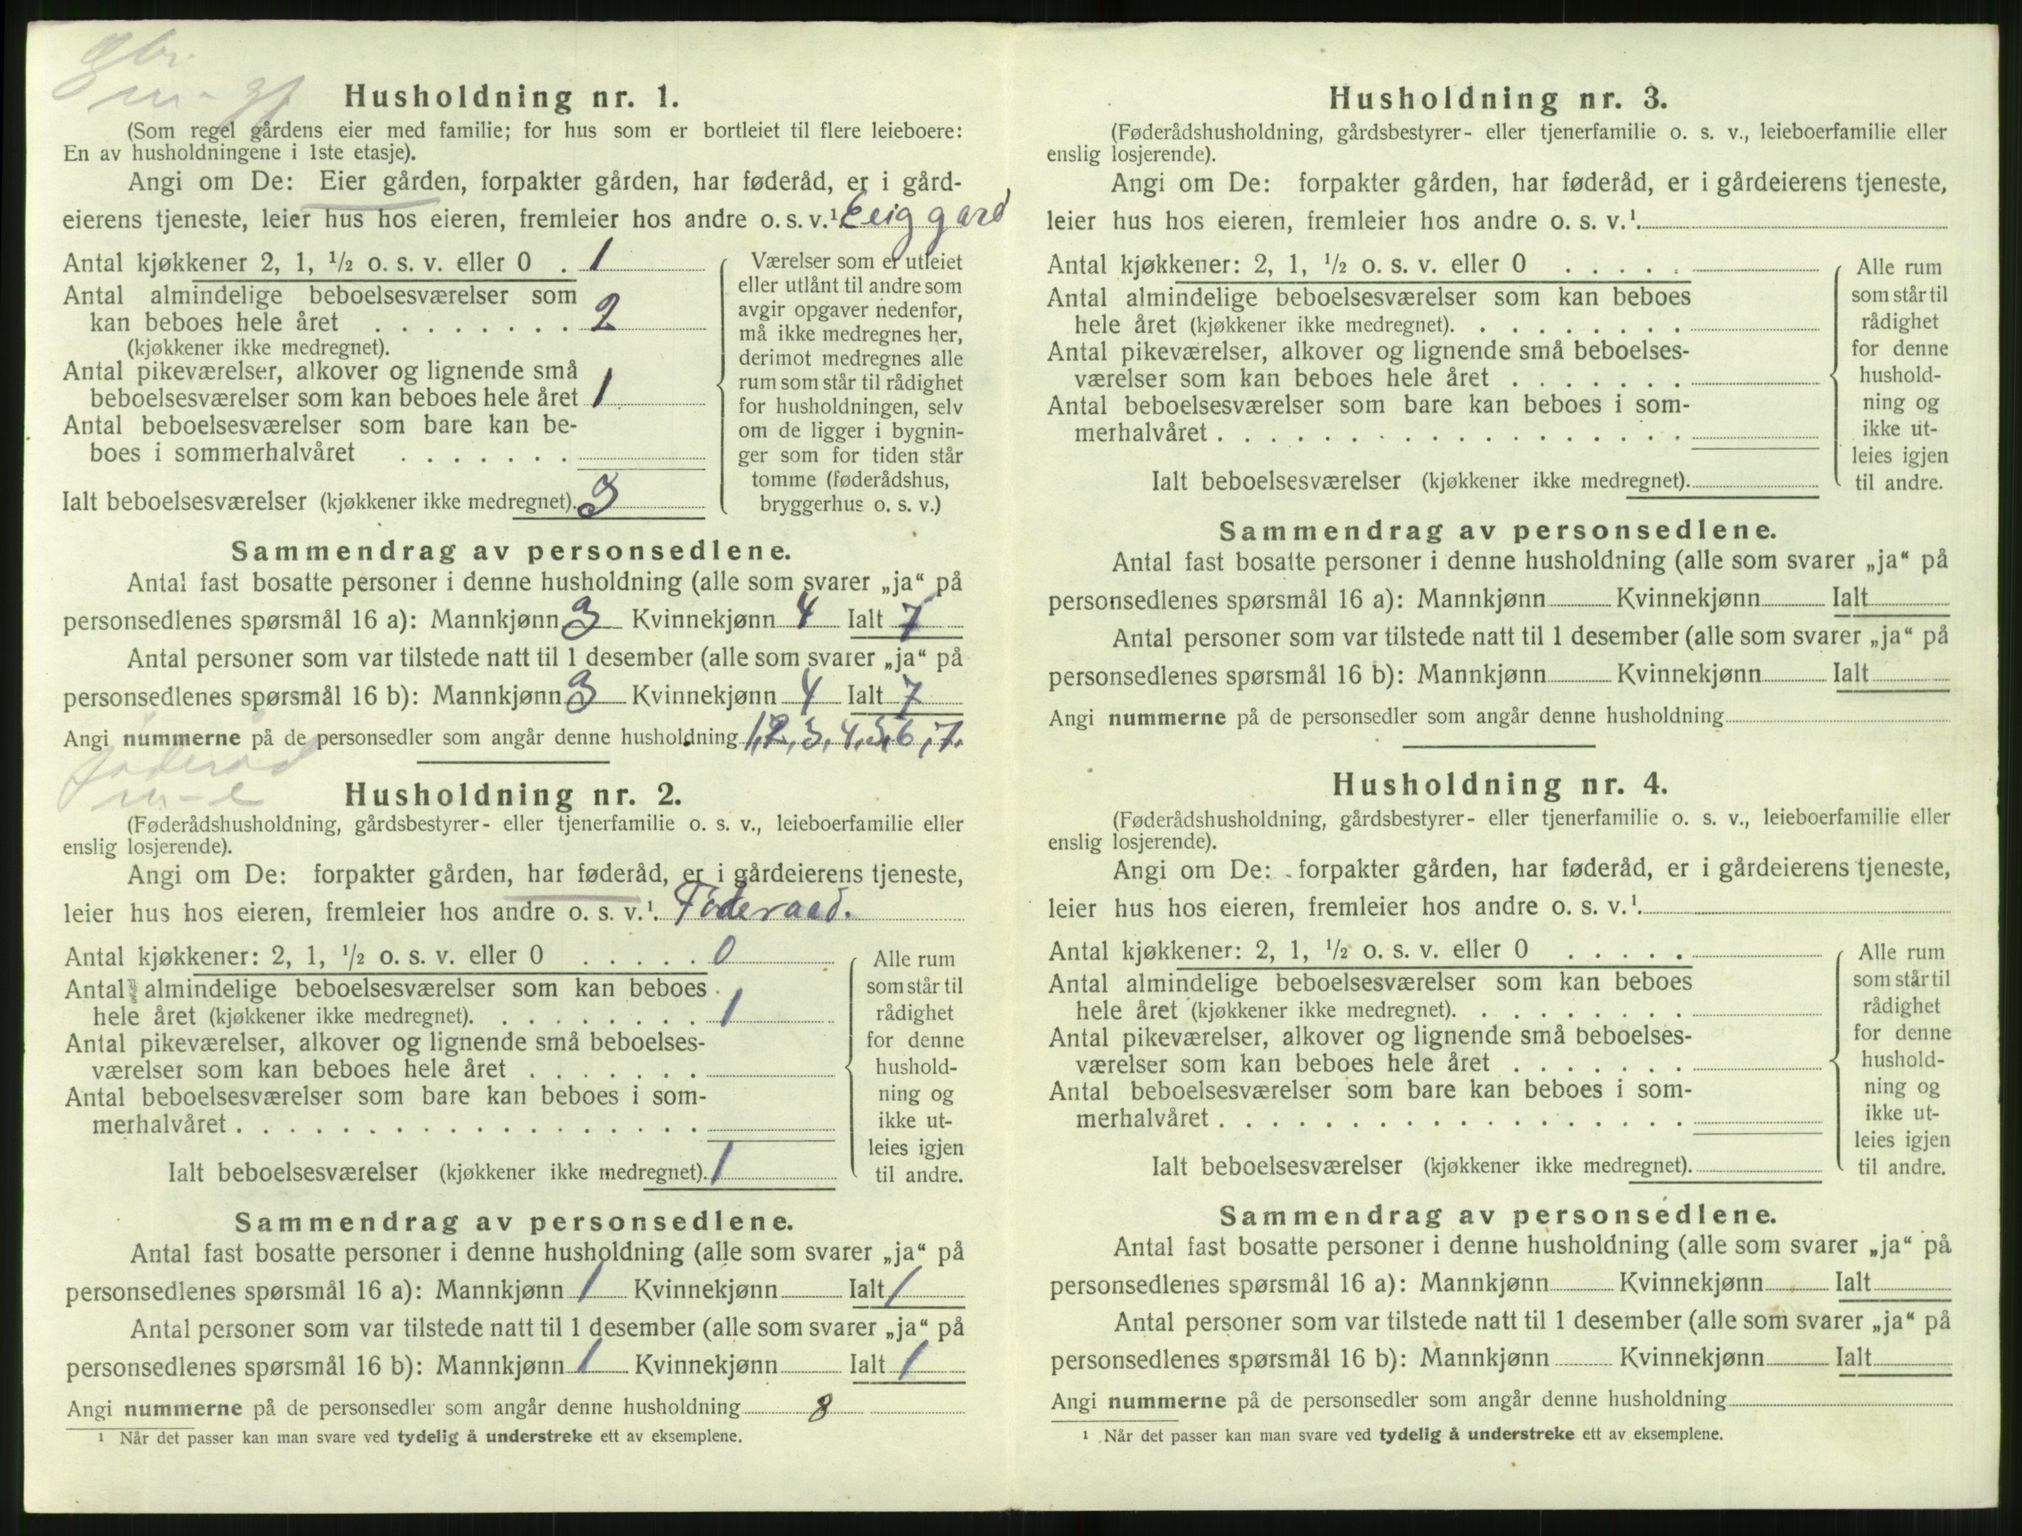 gbr.
m-gf
Husholdning nr. 1.
(Som regel gårdens eier med familie; for hus som er bortleiet til flere leieboere:
En av husholdningene i 1ste etasje).
Angi om De: Eier gården, forpakter gården, har føderåd, er i gård-
eierens tjeneste, leier hus hos eieren, fremleier hos andre o. s. v.¹ Eeig gard
Antal kjøkkener 2, 1, ½ o. s. v. eller 0 . 1
Antal almindelige beboelsesværelser som
kan beboes hele året . . . . . . . . 2
(kjøkkener ikke medregnet).
Antal pikeværelser, alkover og lignende små
beboelsesværelser som kan beboes hele året 1
Antal beboelsesværelser som bare kan be-
boes i sommerhalvåret . . . . . . .
Ialt beboelsesværelser (kjøkkener ikke medregnet). 3
Værelser som er utleiet
eller utlånt til andre som
avgir opgaver nedenfor,
må ikke medregnes her,
derimot medregnes alle
rum som står til rådighet
for husholdningen, selv
om de ligger i bygnin-
ger som for tiden står
tomme (føderådshus,
bryggerhus o. s. v.)
Sammendrag av personsedlene.
Antal fast bosatte personer i denne husholdning (alle som svarer „ja“ på
personsedlenes spørsmål 16 a): Mannkjønn 3 Kvinnekjønn 4 Ialt 7
Antal personer som var tilstede natt til 1 desember (alle som svarer „ja“ på
personsedlenes spørsmål 16 b): Mannkjønn 3 Kvinnekjønn 4 Ialt 7
Angi nummerne på de personsedler som angår denne husholdning 1,2,3,4,5,6,7.
føderåd
m-e
Husholdning nr. 2.
(Føderådshusholdning, gårdsbestyrer- eller tjenerfamilie o. s. v., leieboerfamilie eller
enslig losjerende).
Angi om De: forpakter gården, har føderåd, er i gårdeierens tjeneste,
leier hus hos eieren, fremleier hos andre o. s. v.¹. Føderaad.
Antal kjøkkener: 2, 1, ½ o. s. v. eller 0 . . . . . 0
Antal almindelige beboelsesværelser som kan beboes
hele året (kjøkkener ikke medregnet). . . . . . . . . 1
Antal pikeværelser, alkover og lignende små beboelses-
værelser som kan beboes hele året . . . . . . .
Antal beboelsesværelser som bare kan beboes i som-
merhalvåret . . . . . . . . . . . . . . . . . .
Ialt beboelsesværelser (kjøkkener ikke medregnet). 1
Alle rum
som står til
rådighet
for denne
hushold-
ning og
ikke ut-
leies igjen
til andre.
Sammendrag av personsedlene.
Antal fast bosatte personer i denne husholdning (alle som svarer „ja“ på
personsedlenes spørsmål 16 a): Mannkjønn 1 Kvinnekjønn Ialt 1
Antal personer som var tilstede natt til 1 desember (alle som svarer „ja“ på
personsedlenes spørsmål 16 b): Mannkjønn 1 Kvinnekjønn Ialt 1
Angi nummerne på de personsedler som angår denne husholdning 8
¹ Når det passer kan man svare ved tydelig å understreke ett av eksemplene.
Husholdning nr. 3.
(Føderådshusholdning, gårdsbestyrer- eller tjenerfamilie o. s. v., leieboerfamilie eller
enslig losjerende).
Angi om De: forpakter gården, har føderåd, er i gårdeierens tjeneste,
leier hus hos eieren, fremleier hos andre o. s. v.¹.
Antal kjøkkener: 2, 1, ½ o. s. v. eller 0 . . . . .
Antal almindelige beboelsesværelser som kan beboes
hele året (kjøkkener ikke medregnet). . . . . . . . .
Antal pikeværelser, alkover og lignende små beboelses-
værelser som kan beboes hele året . . . . . . .
Antal beboelsesværelser som bare kan beboes i som-
merhalvåret . . . . . . . . . . . . . . . . . .
Ialt beboelsesværelser (kjøkkener ikke medregnet).
Alle rum
som står til
rådighet
for denne
hushold-
ning og
ikke ut-
leies igjen
til andre.
Sammendrag av personsedlene.
Antal fast bosatte personer i denne husholdning (alle som svarer „ja“ på
personsedlenes spørsmål 16 a): Mannkjønn Kvinnekjønn Ialt
Antal personer som var tilstede natt til 1 desember (alle som svarer „ja“ på
personsedlenes spørsmål 16 b): Mannkjønn Kvinnekjønn Ialt
Angi nummerne på de personsedler som angår denne husholdning
Husholdning nr. 4.
(Føderådshusholdning, gårdsbestyrer- eller tjenerfamilie o. s. v., leieboerfamilie eller
enslig losjerende).
Angi om De: forpakter gården, har føderåd, er i gårdeierens tjeneste,
leier hus hos eieren, fremleier hos andre o. s. v.¹.
Antal kjøkkener: 2, 1, ½ o. s. v. eller 0 . . . . .
Antal almindelige beboelsesværelser som kan beboes
hele året (kjøkkener ikke medregnet). . . . . . . . .
Antal pikeværelser, alkover og lignende små beboelses-
værelser som kan beboes hele året . . . . . . .
Antal beboelsesværelser som bare kan beboes i som-
merhalvåret . . . . . . . . . . . . . . . . . .
Ialt beboelsesværelser (kjøkkener ikke medregnet).
Alle rum
som står til
rådighet
for denne
hushold-
ning og
ikke ut-
leies igjen
til andre.
Sammendrag av personsedlene.
Antal fast bosatte personer i denne husholdning (alle som svarer „ja“ på
personsedlenes spørsmål 16 a): Mannkjønn Kvinnekjønn Ialt
Antal personer som var tilstede natt til 1 desember (alle som svarer „ja“ på
personsedlenes spørsmål 16 b): Mannkjønn Kvinnekjønn Ialt
Angi nummerne på de personsedler som angår denne husholdning
¹ Når det passer kan man svare ved tydelig å understreke ett av eksemplene.